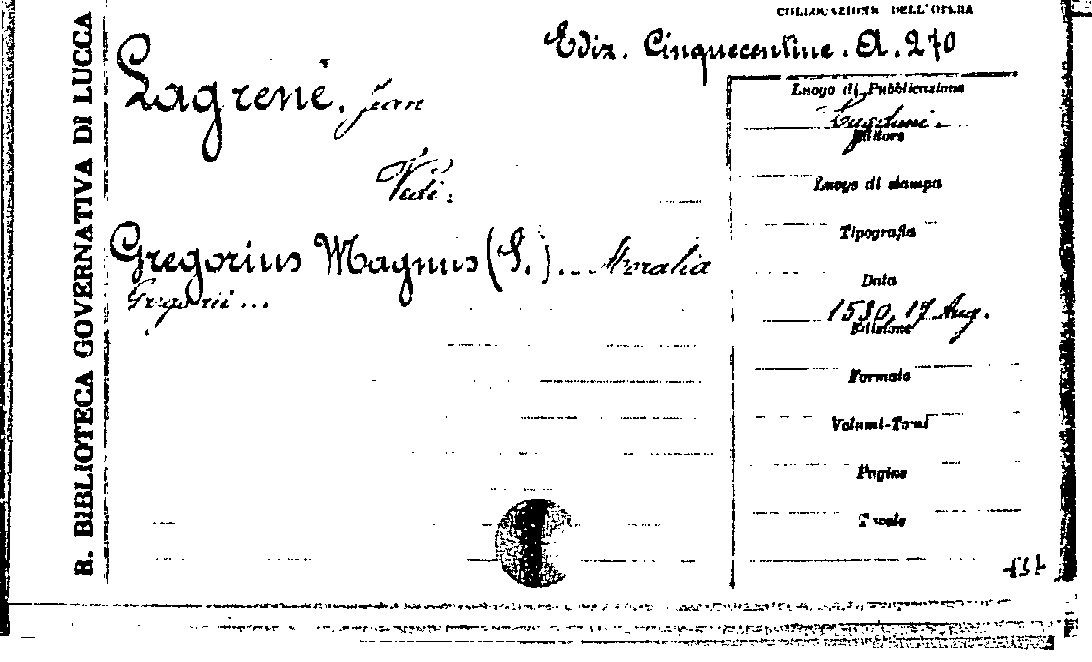 R. BIBLIOTECA GOVERNATIVA DI LUCCA
COLLOCAZIONE DELL'OPERA
Ediz. Cinquecentine. A. 270
Lagrené, Jean
Vedi:
Gregorius Magnus (S.)... Moralia
Gregorii...
Luogo di Pubblicazione
Lugduni.
Editore
Luogo di stampa
Tipografia
Data
1530, 17 Aug.
Edizione
Formato
Volumi-Tomi
Pagine
Tavole